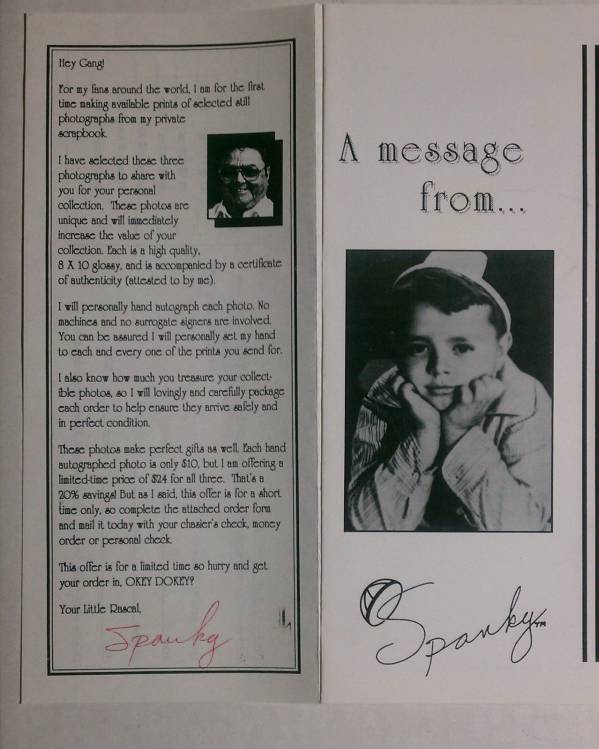 Hey Gang!
For my fans around the world, I am for the first
time making available prints of selected still
photographs from my private
scrapbook.
I have selected these three
photographs to share with
you for your personal
collection. These photos are
unique and will immediately
increase the value of your
collection. Each is a high quality,
8 X 10 glossy, and is accompanied by a certificate
of authenticity (attested to by me).
I will personally hand autograph each photo. No
machines and no surrogate signers are involved.
You can be assured I will personally set my hand
to each and every one of the prints you send for.
I also know how much you treasure your collect-
ible photos, so I will lovingly and carefully package
each order to help ensure they arrive safely and
in perfect condition.
These photos make perfect gifts as well. Each hand
autographed photo is only $10, but I am offering a
limited-time price of $24 for all three. That's a
20% savings! But as I said, this offer is for a short
time only, so complete the attached order form
and mail it today with your chasier's check, money
order or personal check.
This offer is for a limited time so hurry and get
your order in, OKEY DOKEY?
Your Little Rascal,
Spanky
A message
from...
Spanky TM